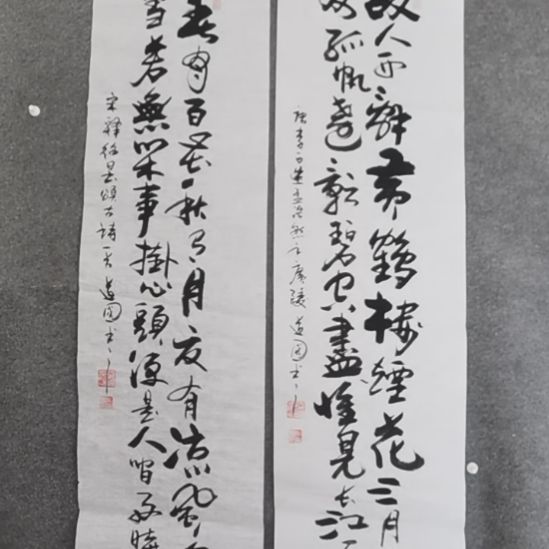 故人西辭黄鶴樓煙花三月
孤帆遠影碧空盡惟見長江
唐李白送孟浩然之廣陵 道圓書
春有百花秋有月夏有凉風冬
雪若無閑事掛心頭便是人間好時
宋釋紹曇頌古詩一首 道圓書